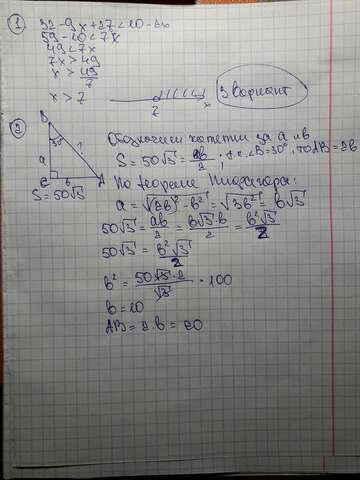 1
32-9x+27<20-2x
59-20<7x
49<7x
7x>49
x > 49/7
x > 7
7
x
3 вариант
2
B
30°
?
a
C
b
A
S=50√3
Обозначим катеты за a и b
S = 50√3 = ab/2 ; т.к. ∠B=30°, то AB=2b
По теореме Пифагора:
a = √((2b)²-b²) = √(3b²) = b√3
50√3 = ab/2 = b√3·b/2 = b²√3/2
50√3 = b²√3/2
b² = 50√3·2/√3 = 100
b=10
AB=2·b=20